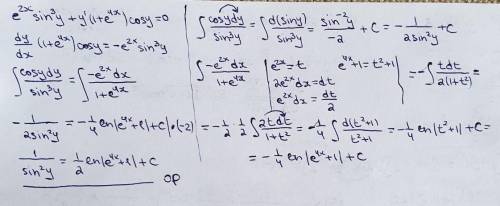 e^{2x} sin³y + y'(1+e^{4x}) cosy = 0
dy/dx (1+e^{4x}) cosy = -e^{2x} sin³y
∫ cosydy/sin³y = ∫ -e^{2x}dx/1+e^{4x}
-1/2sin²y = -1/4 en|e^{4x}+1|+C |·(-2)
1/sin²y = 1/2 en|e^{4x}+1|+C
OP
∫ cosydy/sin³y = ∫ d(siny)/sin³y = sin^{-2}y/-2 + C = -1/2sin²y + C
∫ -e^{2x}dx/1+e^{4x} | e^{2x}=t e^{4x}+1=t²+1 | = -∫ dt/2(1+t²) =
2e^{2x}dx=dt
e^{2x}dx=dt/2
= -1/2 · 1/2 ∫ 2tdt/1+t² = -1/4 ∫ d(t²+1)/t²+1 = -1/4 en|t²+1|+C =
= -1/4 en|e^{4x}+1|+C